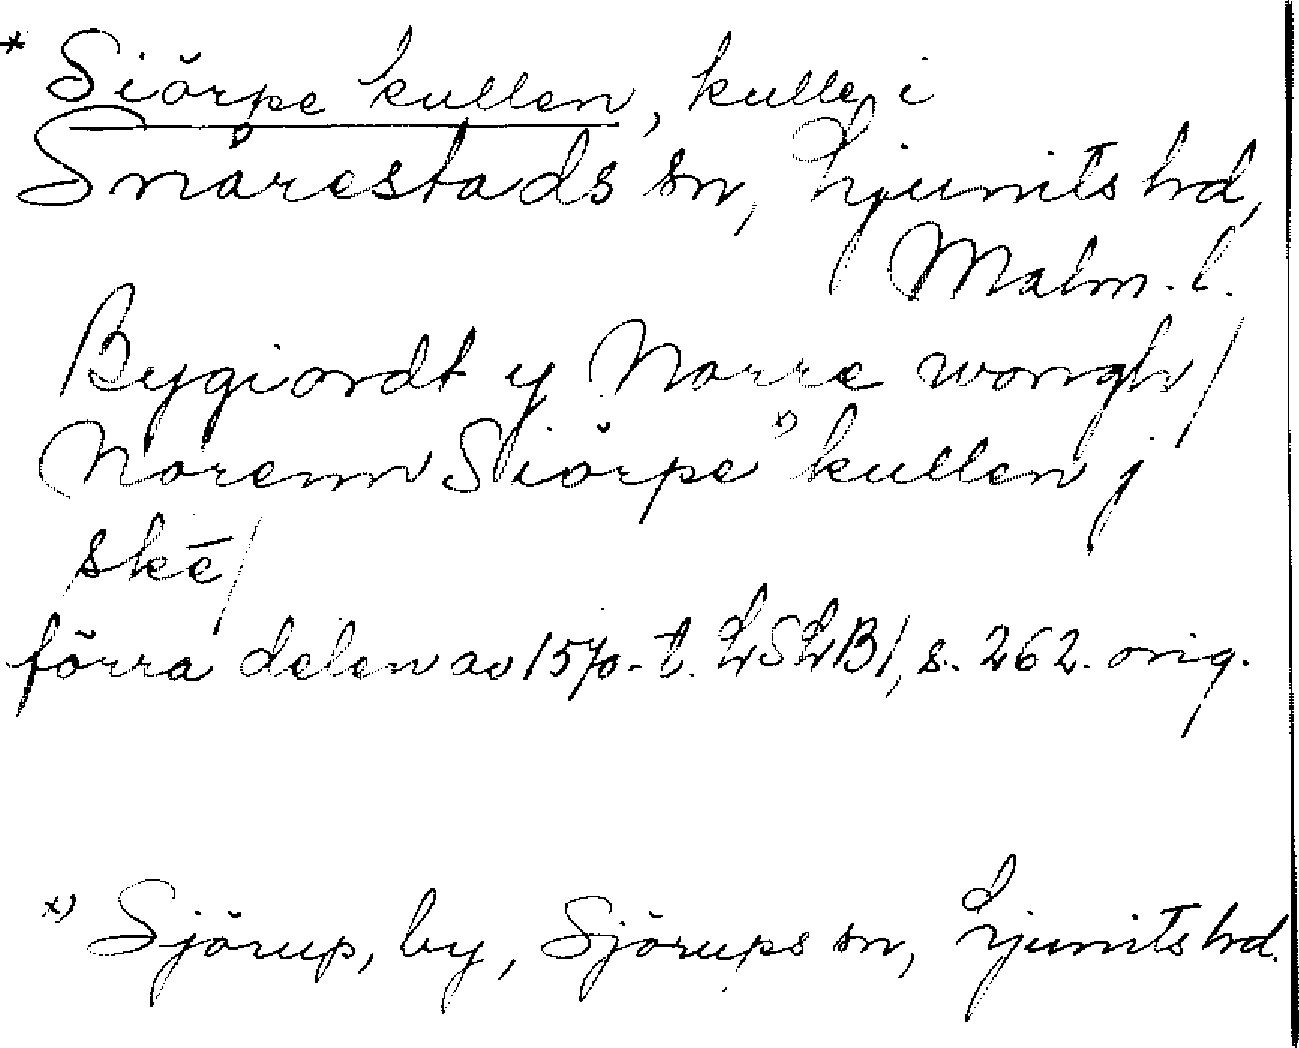 * Siörpe kullen, kulle i
Snårestads sn, Ljunits hd,
Malm. l.
Bygiordt y Norre wongh/
Norenn Siörpe x) kullen j
skē/
förra delen av 1570-t. LSLB1, s. 262. orig.
x) Sjörup, by, Sjörups sn, Ljunits hd.